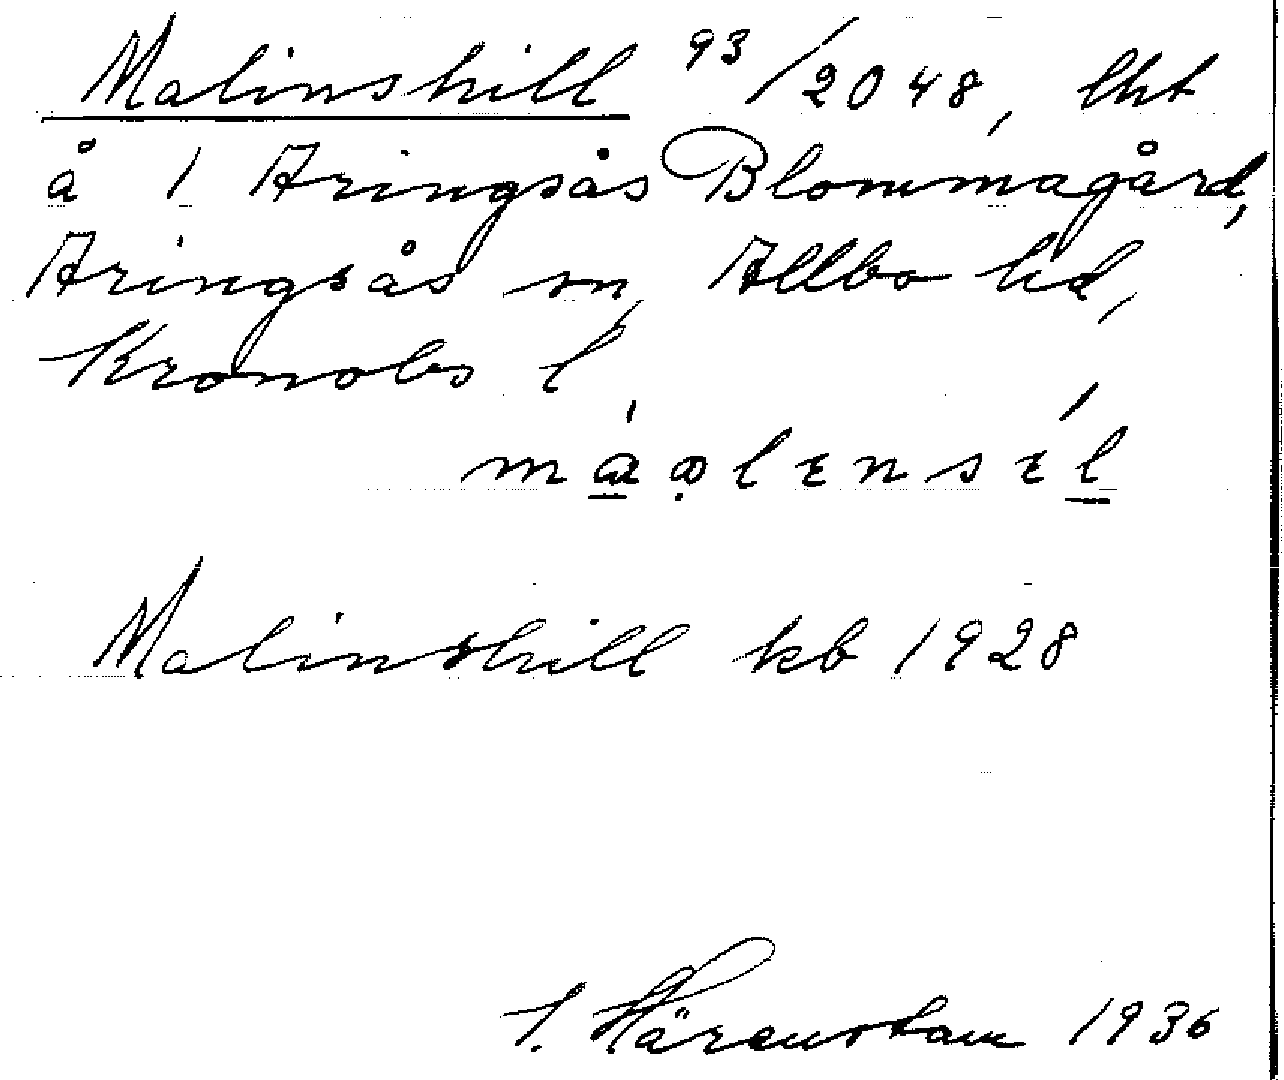 Malinshill 93/2048, lht
å 1 Aringsås Blommagård,
Aringsås sn, Allbo hd,
Kronobs l
Malinshill kb 1928
I. Härenstam 1936